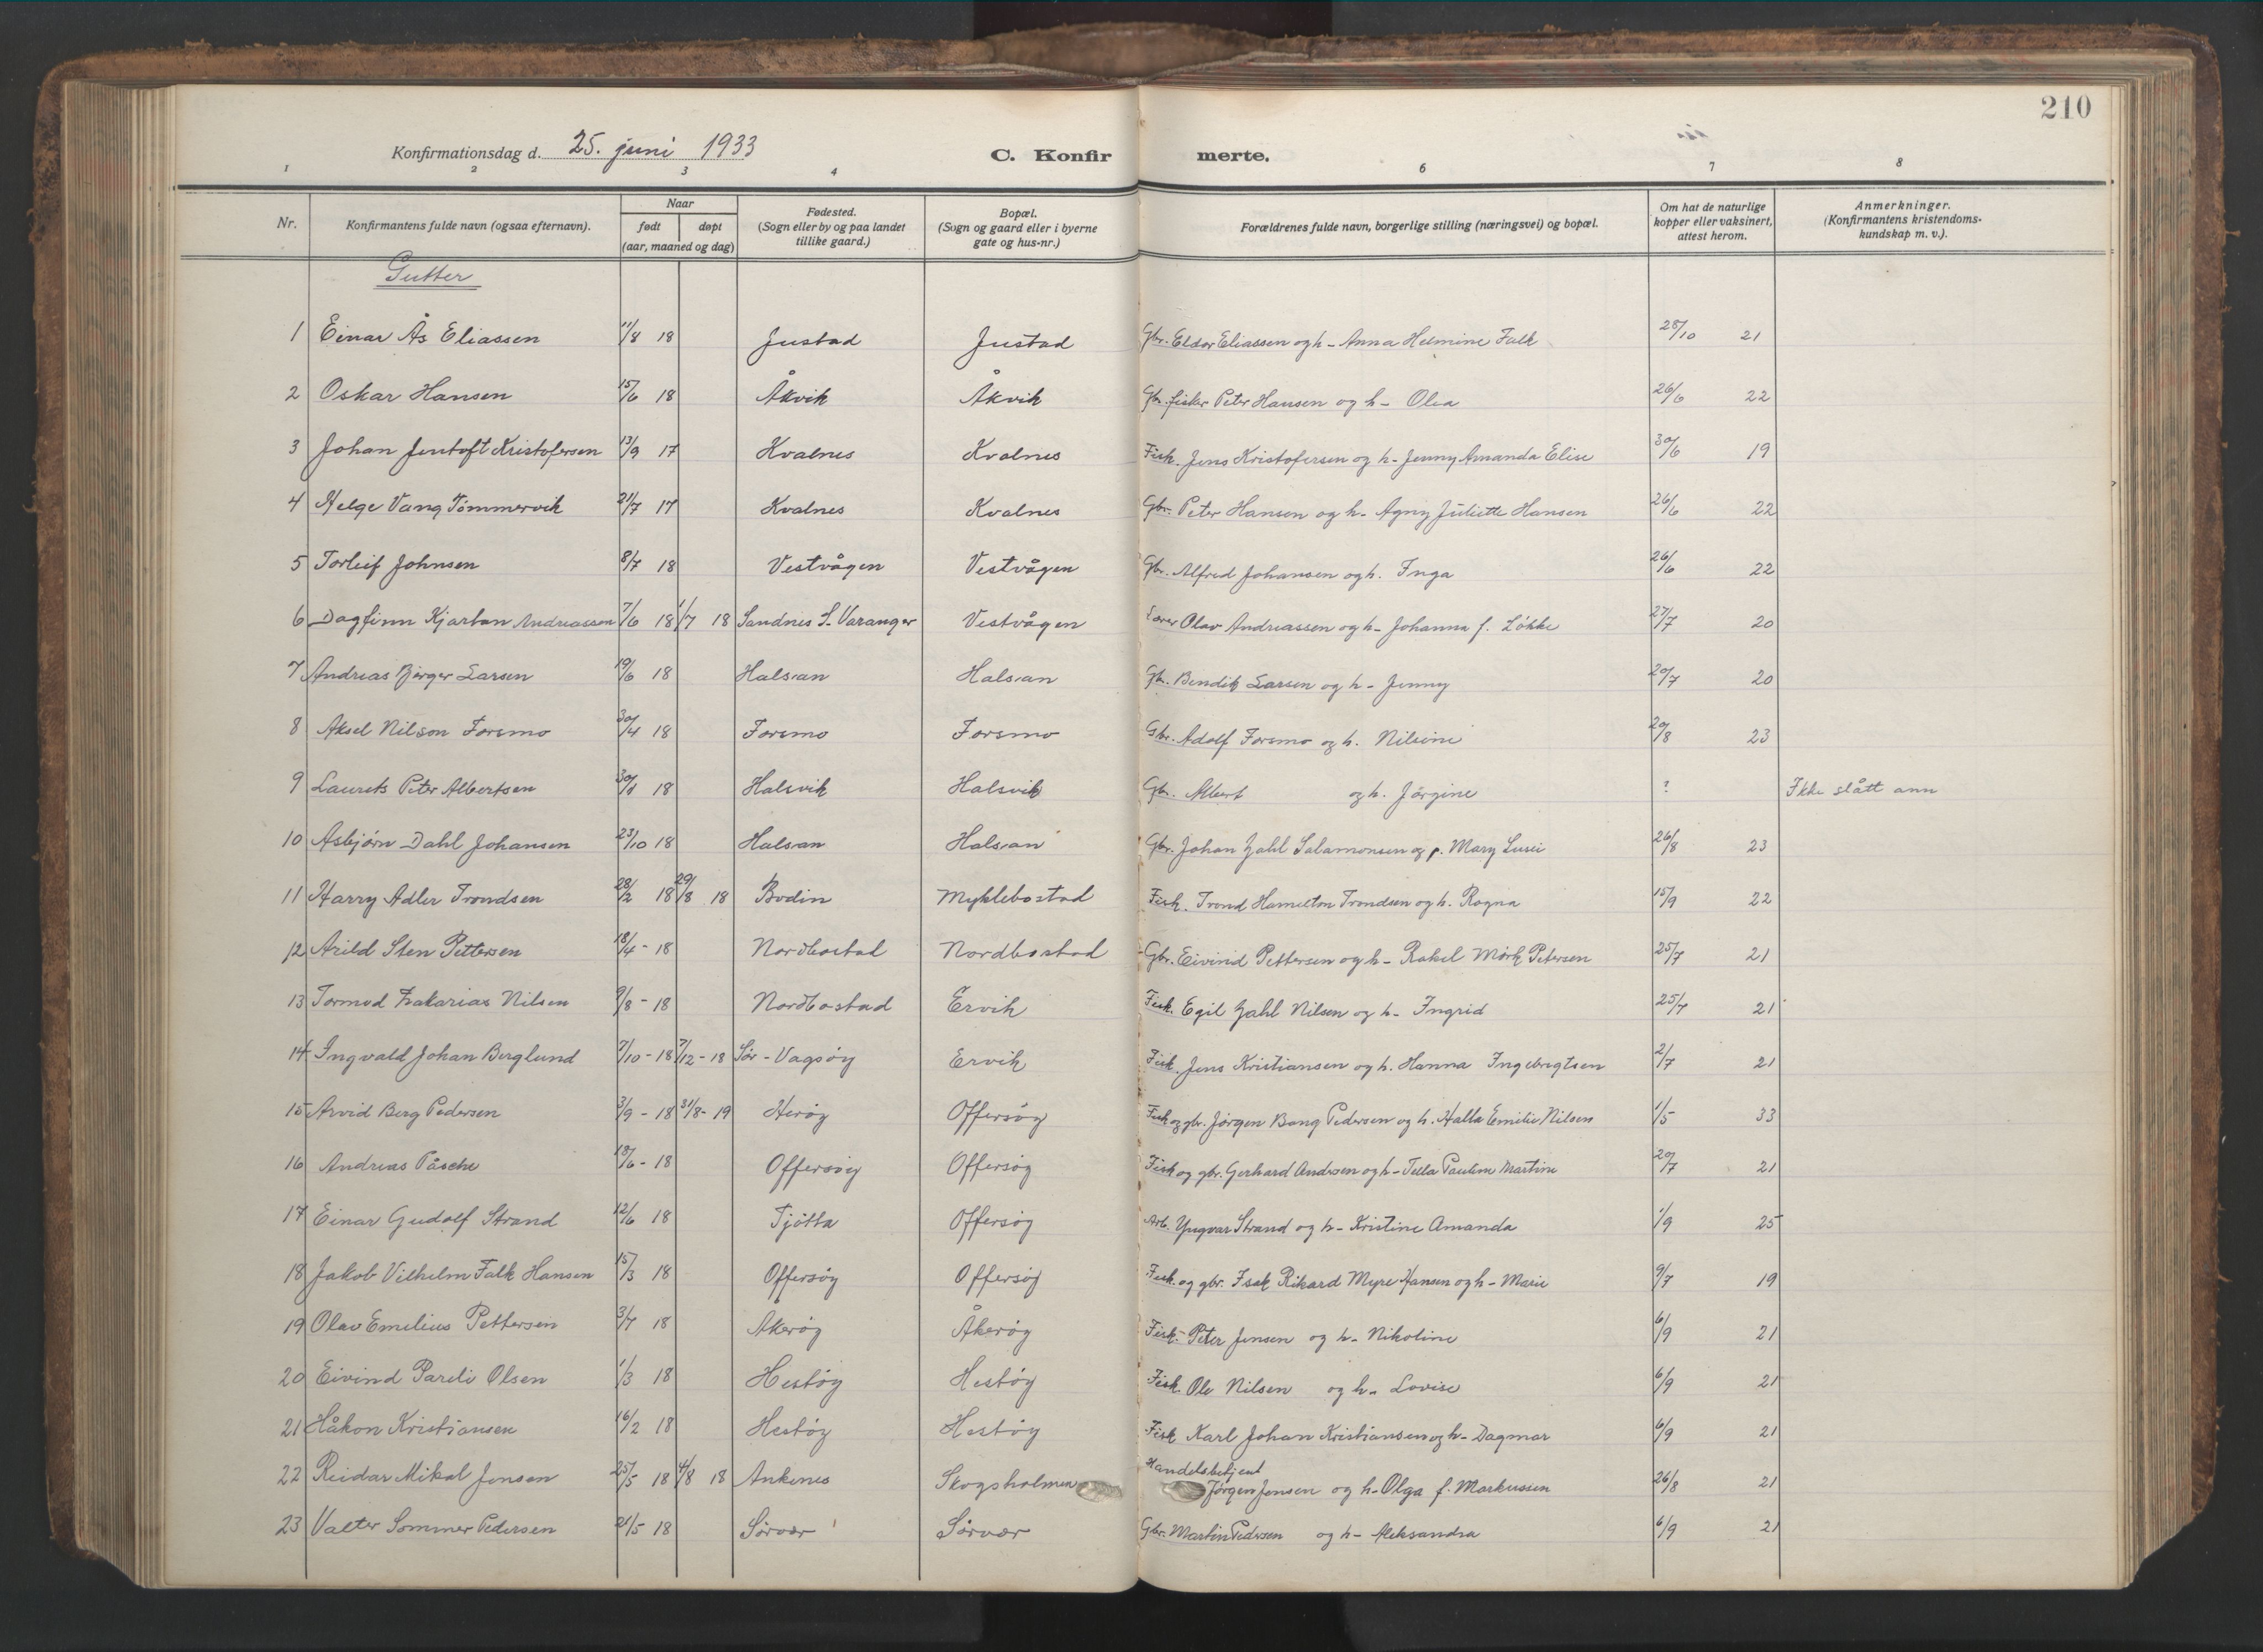 210
Konfirmationsdag d. 25. juni 1933 C. Konfir merte.
1 2 3 4 6 7 8
Nr. Konfirmantens fulde navn (ogsaa efternavn). Naar født døpt (aar, maaned og dag) Fødested. (Sogn eller by og paa landet tillike gaard.) Bopæl. (Sogn og gaard eller i byerne gate og hus-nr.) Forældrenes fulde navn, borgerlige stilling (næringsvei) og bopæl. Om hat de naturlige kopper eller vaksinert, attest herom. Anmerkninger. (Konfirmantens kristendoms-kundskap m. v.).
Gutter
1 Einar Ås Eliassen 11/8 18 Justad Justad Gbr. Eldor Eliassen og h- Anna Helmine Falk 28/10 21
2 Oskar Hansen 15/6 18 Åkvik Åkvik Gbr. fisker Peter Hansen og h- Olea 26/6 22
3 Johan Jentoft Kristofersen 13/9 17 Kvalnes Kvalnes Fisk. Jens Kristofersen og h- Jenny Amanda Elise 30/6 19
4 Helge Vang Tømmervik 21/7 17 Kvalnes Kvalnes Gbr. Peter Hansen og h- Agny Juliette Hansen 26/6 22
5 Torleif Johnsen 8/7 18 Vestvågen Vestvågen Gbr. Alfred Johansen og h. Inga 26/6 22
6 Dagfinn Kjartan Andreassen 7/6 18 1/7 18 Sandnes S. Varanger Vestvågen Lærer Olav Andreassen og h- Johanna f. Løkke 27/7 20
7 Andreas Birger Larsen 19/6 18 Halsan Halsan Gbr. Bendik Larsen og h- Jenny 20/7 20
8 Aksel Nilson Forsmo 30/4 18 Forsmo Forsmo Gbr. Adolf Forsmo og h. Nilsine 20/8 23
9 Laurits Peter Albertsen 18 Halsvik Halsvik Gbr. Albert og h. Jørgine ? Ikke slått ann
10 Asbjørn Dahl Johansen 23/10 18 Halsan Halsan Gbr. Johan Zahl Salamonsen og p. Mary Lusie 26/8 23
11 Harry Adler Trondsen 28/2 18 29/8 18 Bodin Myklebostad Fisk. Trond Hamilton Trondsen og h. Ragna 15/9 22
12 Arild Sten Pettersen 18/4 - 18 Nordbostad Nordbostad Gbr. Eivind Pettersen og h- Rakel Mørk Petersen 25/7 21
13 Tormod Zakarias Nilsen 9/8 - 18 Nordbostad Ervik Fisk. Egil Zahl Nilsen og h- Ingrid 25/7 21
14 Ingvald Johan Berglund 7/10 - 18 7/12 - 18 Sør - Vagsøy Ervik Fisk. Jens Kristiansen og h. Hanna Ingebrigtsen 2/7 21
15 Arvid Berg Pedersen 3/9 - 18 31/8 - 19 Herøy Offersøy Fisk og gbr. Jørgen Bang Pedersen og h. Halla Emilie Nilsen 1/5 33
16 Andreas Påsche 18/6 - 18 Offersøy Offersøy Fisk og gbr. Gerhard Andersen og h- Tella Pauline Martine 20/7 21
17 Einar Gudolf Strand 12/6 18 Tjøtta Offersøy Arb. Yngvar Strand og h- Kristine Amanda 1/9 25
18 Jakob Vilhelm Falk Hansen 15/3 18 Offersøy Offersøy Fisk. og gbr. Isak Rikard Myre Hansen og h- Marie 9/7 19
19 Olav Emilius Pettersen 3/7 18 Åkerøy Åkerøy Fisk- Peter Jensen og h- Nikoline 6/9 21
20 Eivind Pareli Olsen 1/3 18 Hestøy Hestøy Fisk. Ole Nilsen og h- Lovise 6/9 21
21 Håkon Kristiansen 16/2 18 Hestøy Hestøy Fisk Karl Johan Kristiansen og h- Dagmar 6/9 21
22 Reidar Mikal Jensen 25/5 18 4/8 18 Ankenes Skogsholmen Handelsbetjent Jørgen Jensen og h- Olga f. Markussen 26/8 21
23 Valter Sommer Pedersen 21/5 18 Sørvær Sørvær Gbr. Martin Pedersen og h- Aleksandra 6/9 21